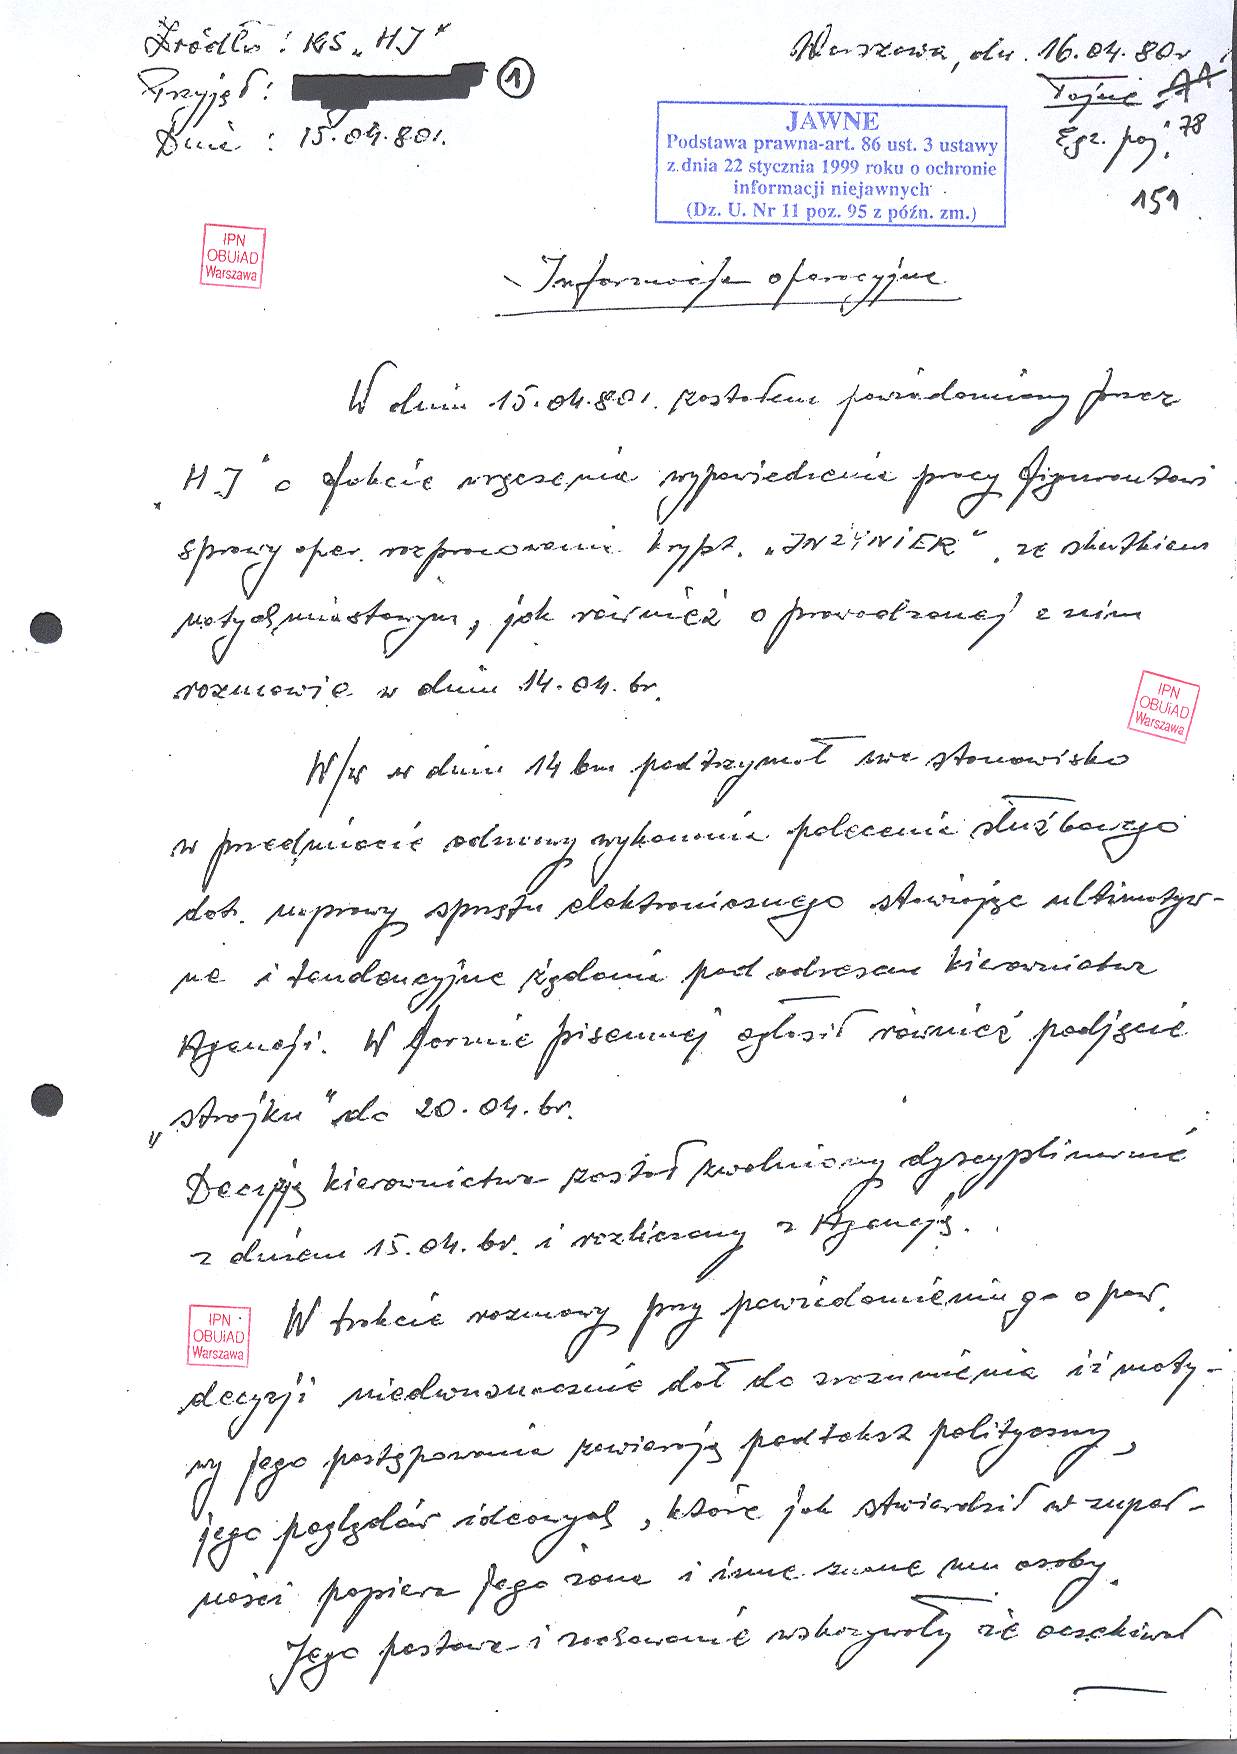 Źródło: KS „HJ"
Przyjął: 1
Dnia: 15.04.80r.
Warszawa, dn. 16.04.80r
Tajne
Egz. poj.
78
151
JAWNE
Podstawa prawna-art. 86 ust. 3 ustawy
z dnia 22 stycznia 1999 roku o ochronie
informacji niejawnych
(Dz. U. Nr 11 poz. 95 z późn. zm.)
IPN
OBUiAD
Warszawa
Informacja operacyjna
W dniu 15.04.80r. zostałem powiadomiony przez
„HJ" o fakcie wręczenia wypowiedzenia pracy figurantowi
sprawy oper. rozpracowania krypt. „INŻYNIER" ze skutkiem
natychmiastowym, jak również o prowadzonej z nim
rozmowie w dniu 14.04.br.
IPN
OBUiAD
Warszawa
W/w w dniu 14 bm podtrzymał swe stanowisko
w przedmiocie odmowy wykonania polecenia służbowego
dot. naprawy sprzętu elektronicznego stawiając ultimatyw-
ne i tendencyjne żądania pod adresem kierownictwa
Agencji. W formie pisemnej ogłosił również podjęcie
„strajku" do 20.04.br.
Decyzją kierownictwa został zwolniony dyscyplinarnie
z dniem 15.04.br. i rozliczony z Agencją.
IPN
OBUiAD
Warszawa
W trakcie rozmowy przy powiadomieniu go o pow.
decyzji niedwuznacznie dał do zrozumienia iż moty-
wy jego postępowania zawierają podtekst polityczny,
jego poglądów ideowych, które jak stwierdził w zupeł-
ności popiera jego żona i inne znane mu osoby.
Jego postawa i zachowanie wskazywały że oczekiwał